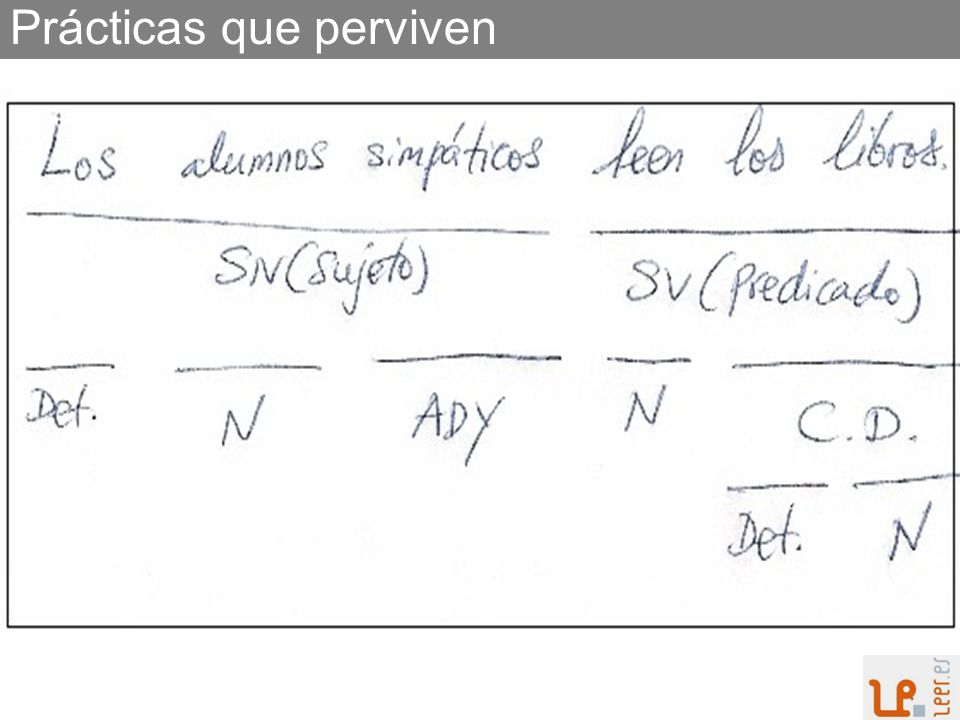 Prácticas que perviven
Los alumnos simpáticos leen los libros.
SN (Sujeto) SV (Predicado)
Det. N ADY N C.D.
Det. N
leer.es